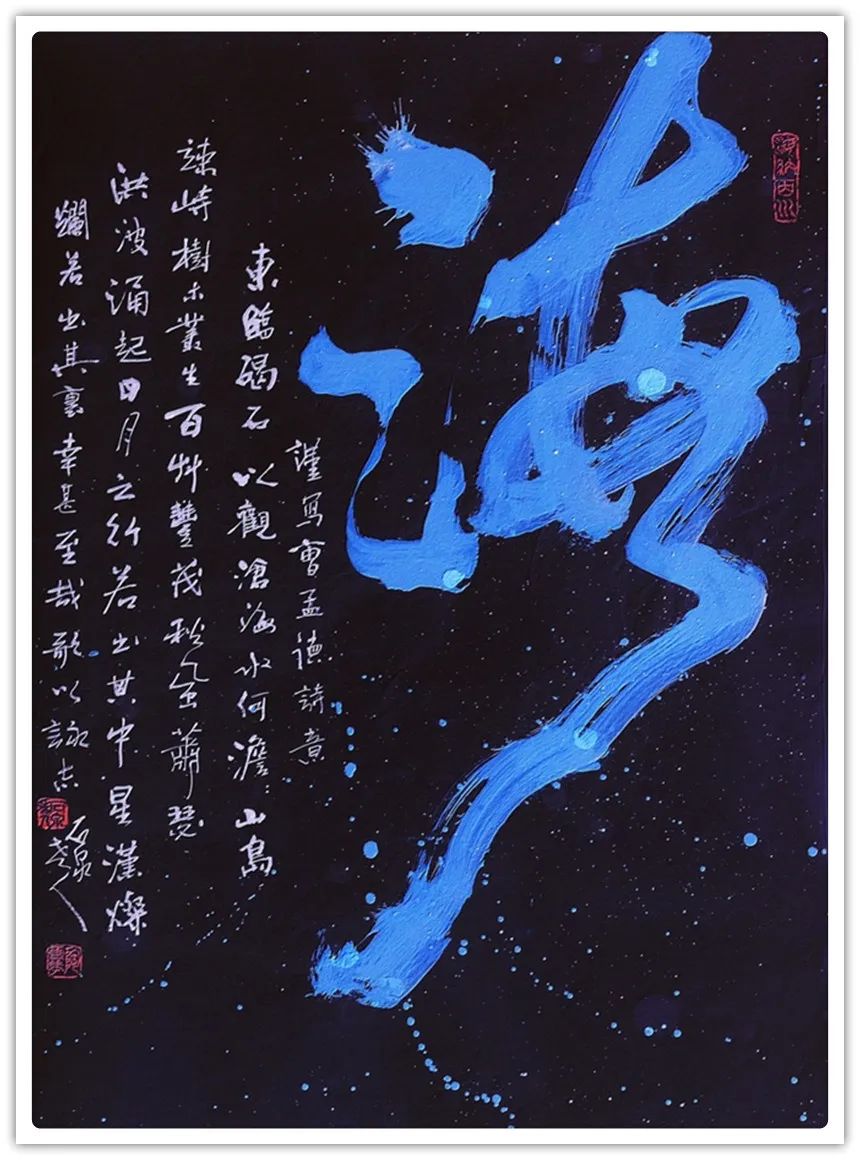 海納百川
海
謹寫曹孟德詩意
東臨碣石以觀滄海水何澹:山島
竦峙樹木叢生百艸豐茂秋風蕭瑟
洪波涌起日月之行若出其中星漢燦
爛若出其裏幸甚至哉歌以詠志
石泉老人